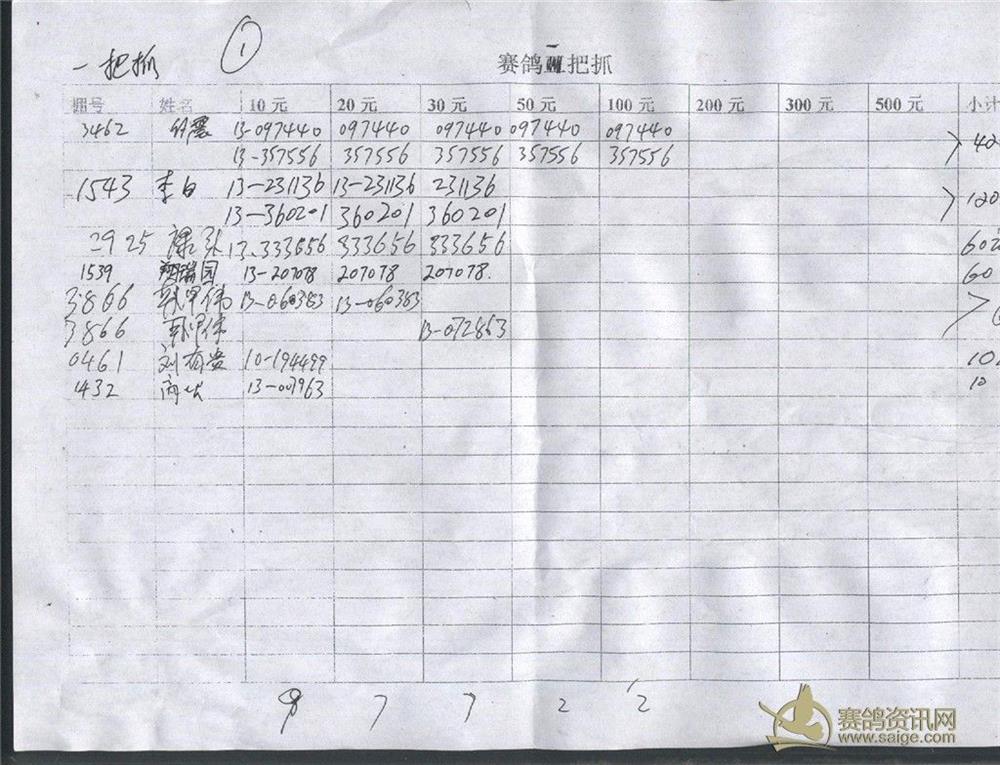 一把抓 ①
赛鸽一把抓
棚号 姓名 10元 20元 30元 50元 100元 200元 300元 500元 小计
3462 13-097440 097440 097440 097440 097440
13-357556 357556 357556 357556 357556
1543 李白 13-231136 13-231136 231136
13-360201 360201 360201 120
2925 13.333656 333656 333656 60
1539 瑞国 13-207078 207078 207078. 60
3866 13-060383 13-060383
3866 13-072863
0461 刘有 10-194499 10
1432 13-007963 10
9 7 7 2 2
赛鸽资讯网
www.saige.com